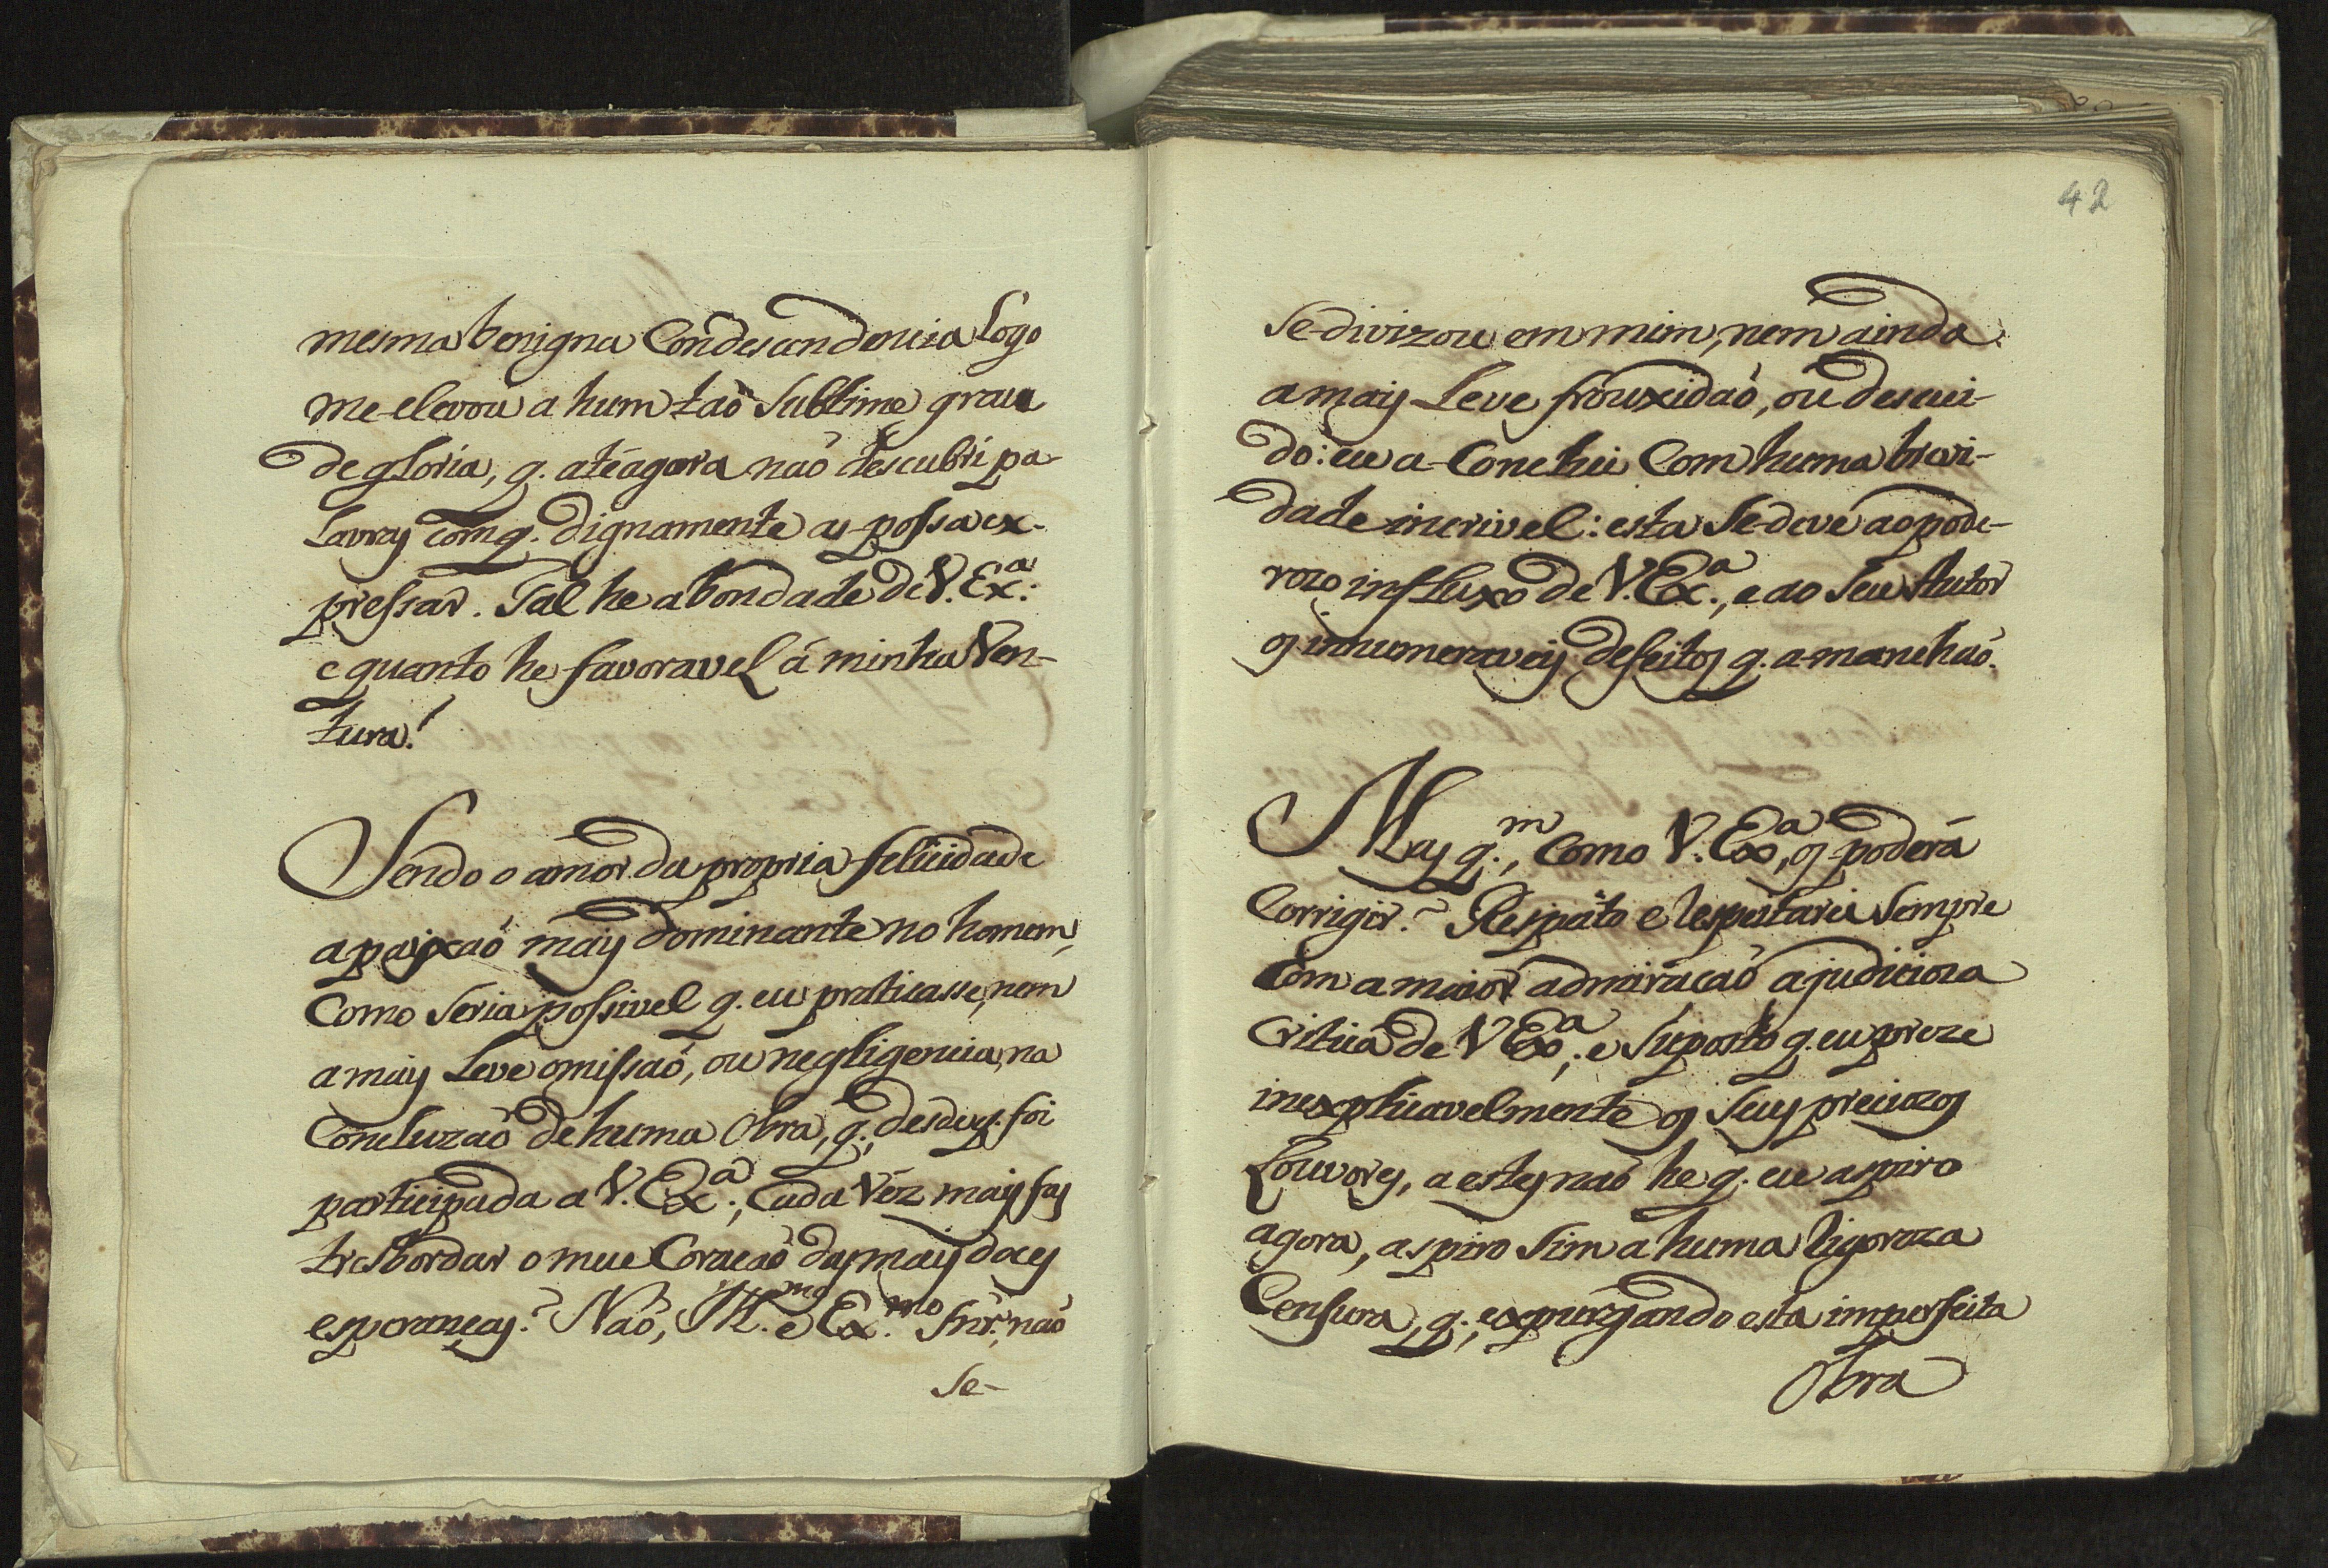 mesma benigna Condescendencia logo
me-elevou a hum taõ Sublime grau
de gloria, q. atéagora naõ descubri pa-
lavras com q. dignamente as-possa ex-
pressar. Tal he a bondade de V. Ex.ª:
e quanto he favoravel á minha Ven-
tura!
Sendo o amor da propria felicidade
a paixaõ mais dominante no homem,
Como Seria possivel q. eu praticasse, nem
a mais Leve omissaõ, ou negligencia, na
Concluzaõ de huma Obra, q., desdeq. foi
participada a V. Ex.ª, Cada Vêz mais faz
tresbordar o meu Coraçaõ das mais doces
esperanças? Naõ, Ill.mo e Ex.mo Snr., naõ
Se-
42
Se-divizou em mim, nem ainda
a mais Leve frouxidaõ, ou descui-
do: eu a-Conclui Com huma brevi-
dade incrivel: esta Se-deve ao pode-
rozo influxo de V. Ex.ª, e ao Seu Autor
os innumeraveis defeitos q. a-manchaõ.
Mas q.m, Como V. Exª, os-poderá
Corrigir? Respeito e respeitarei Sempre
Com a maior admiraçaõ a judicioza
Critica de V Exª; e Suposto q. eu preze
inexplicavelmente os Seus preciozos
Louvores, a estes naõ he q. eu aspiro
agora, aspiro Sim a huma rigoroza
Censura, q., expurgando esta imperfeita
Obra